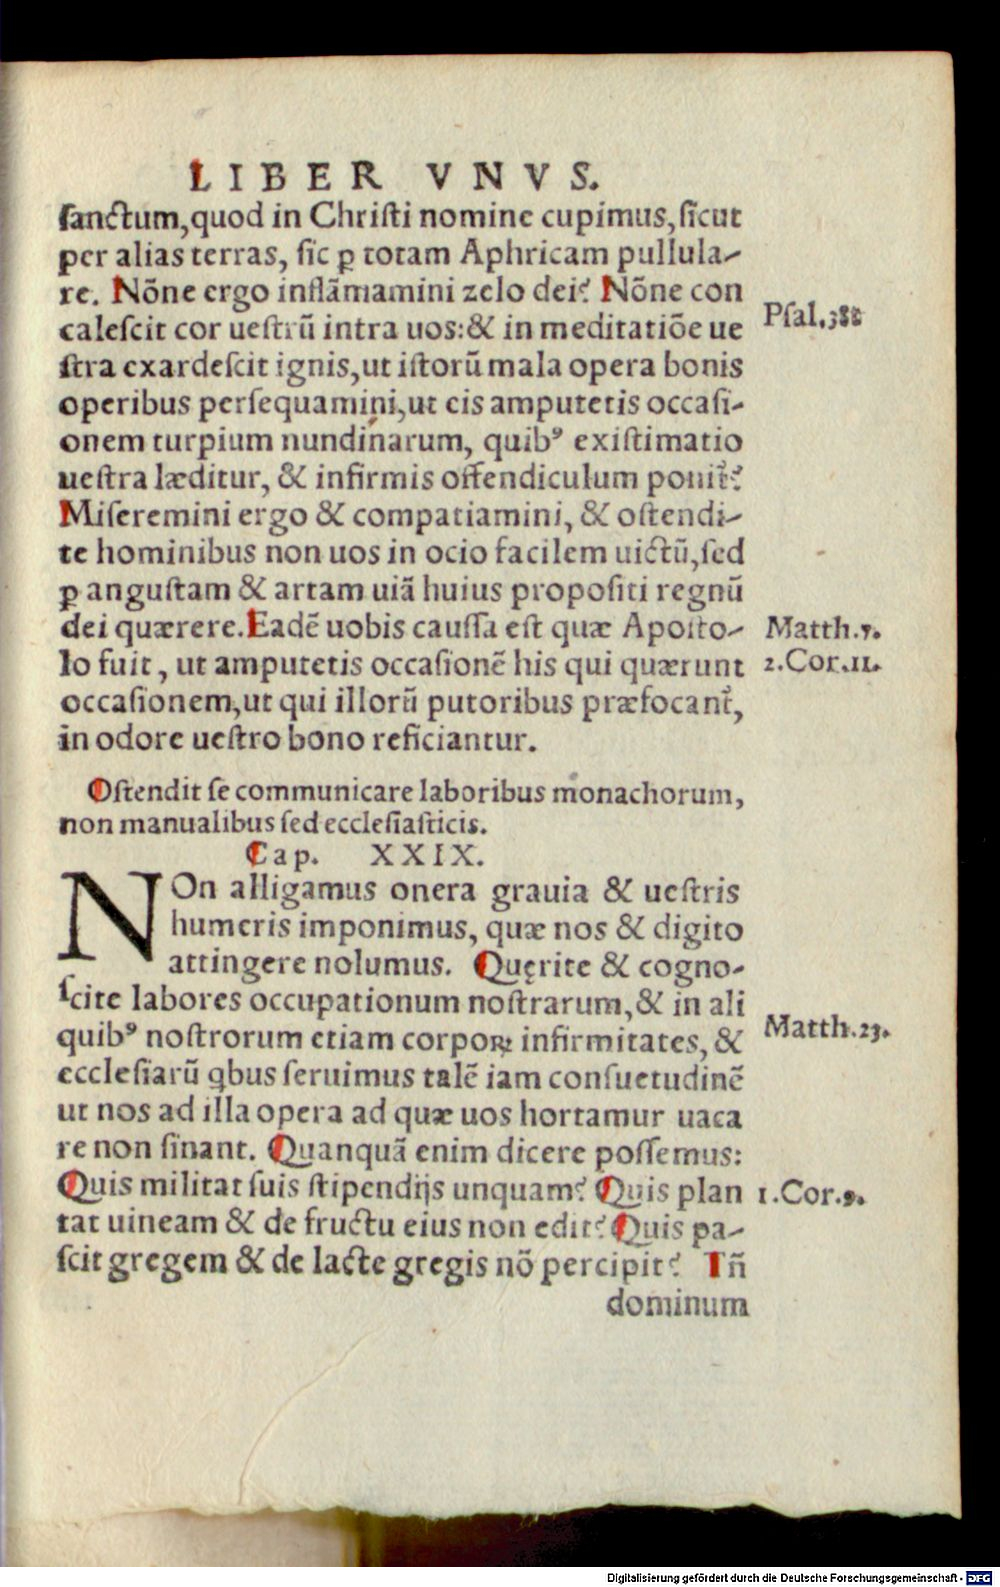 LIBER VNVS.
sanctum,quod in Christi nomine cupimus,sicut
per alias terras, sic ꝑ totam Aphricam pullula-
re. Nōne ergo inflāmamini zelo dei? Nōne con
Psal.38
calescit cor uestrū intra uos:& in meditatiōe ue
stra exardescit ignis,ut istorū mala opera bonis
operibus persequamini,ut eis amputetis occasi-
onem turpium nundinarum, quibꝰ existimatio
uestra læditur, & infirmis offendiculum ponit᷑?
Miseremini ergo & compatiamini, & ostendi-
te hominibus non uos in ocio facilem uictū,sed
ꝑ angustam & artam uiā huius propositi regnū
dei quærere.Eadē uobis caussa est quæ Aposto-
Matth.7.
lo fuit, ut amputetis occasionē his qui quærunt
2.Cor.11.
occasionem,ut qui illorū putoribus præfocant᷑,
in odore uestro bono reficiantur.
Ostendit se communicare laboribus monachorum,
non manualibus sed ecclesiasticis.
Cap. XXIX.
NOn alligamus onera grauia & uestris
humeris imponimus, quæ nos & digito
attingere nolumus. Quęrite & cogno-
scite labores occupationum nostrarum,& in ali
Matth.23.
quibꝰ nostrorum etiam corporꝝ infirmitates, &
ecclesiarū ꝗbus seruimus talē iam consuetudinē
ut nos ad illa opera ad quæ uos hortamur uaca
re non sinant. Quanquā enim dicere possemus:
Quis militat suis stipendijs unquam? Quis plan
1.Cor.9.
tat uineam & de fructu eius non edit? Quis pa-
scit gregem & de lacte gregis nō percipit? Tn̄
dominum
Digitalisierung gefördert durch die Deutsche Forschungsgemeinschaft - DFG